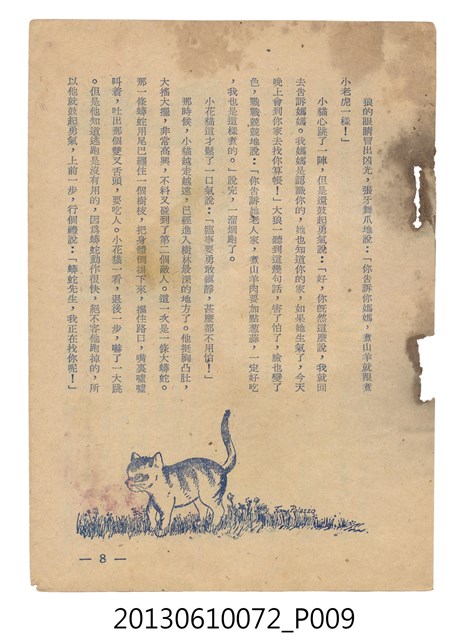 狼的眼睛冒出凶光，張牙舞爪地說：「你告訴你媽媽，煮山羊就跟煮
小老虎一樣！」
小貓心跳了一陣，但是還鼓起勇氣說：「好，你旣然這麼說，我就回
去告訴媽媽。我媽媽是認識你的，她也知道你的家，如果她生氣了，今天
晚上會到你家去找你算帳！」大狼一聽到這幾句話，害了怕了，臉也變了
色，戰戰兢兢地說：「你告訴她老人家，煮山羊肉要加點葱蒜，一定好吃
，我也是這樣煮的。」說完，一溜烟跑了。
小花貓這才鬆了一口氣說：「臨事要勇敢鎭靜，甚麼都不用怕！」
那時候，小貓越走越遠，已經進入樹林最深的地方了。他挺胸凸肚，
大搖大擺，非常高興，不料又碰到了第二個敵人。這一次是一條大蟒蛇。
那一條蟒蛇用尾巴纏住一個樹枝，把身體倒掛下來，攔住路口，嘴裏噓噓
叫着，吐出那個雙叉舌頭，要吃人。小花貓一看，退後一步，嚇了一大跳
。但是他知道逃跑是沒有用的，因爲蟒蛇動作很快，絕不容他跑掉的，所
以他就鼓起勇氣，上前一步，行個禮說：「蟒蛇先生，我正在找你呢！」
Tony Palazzo
— 8 —
20130610072_P009